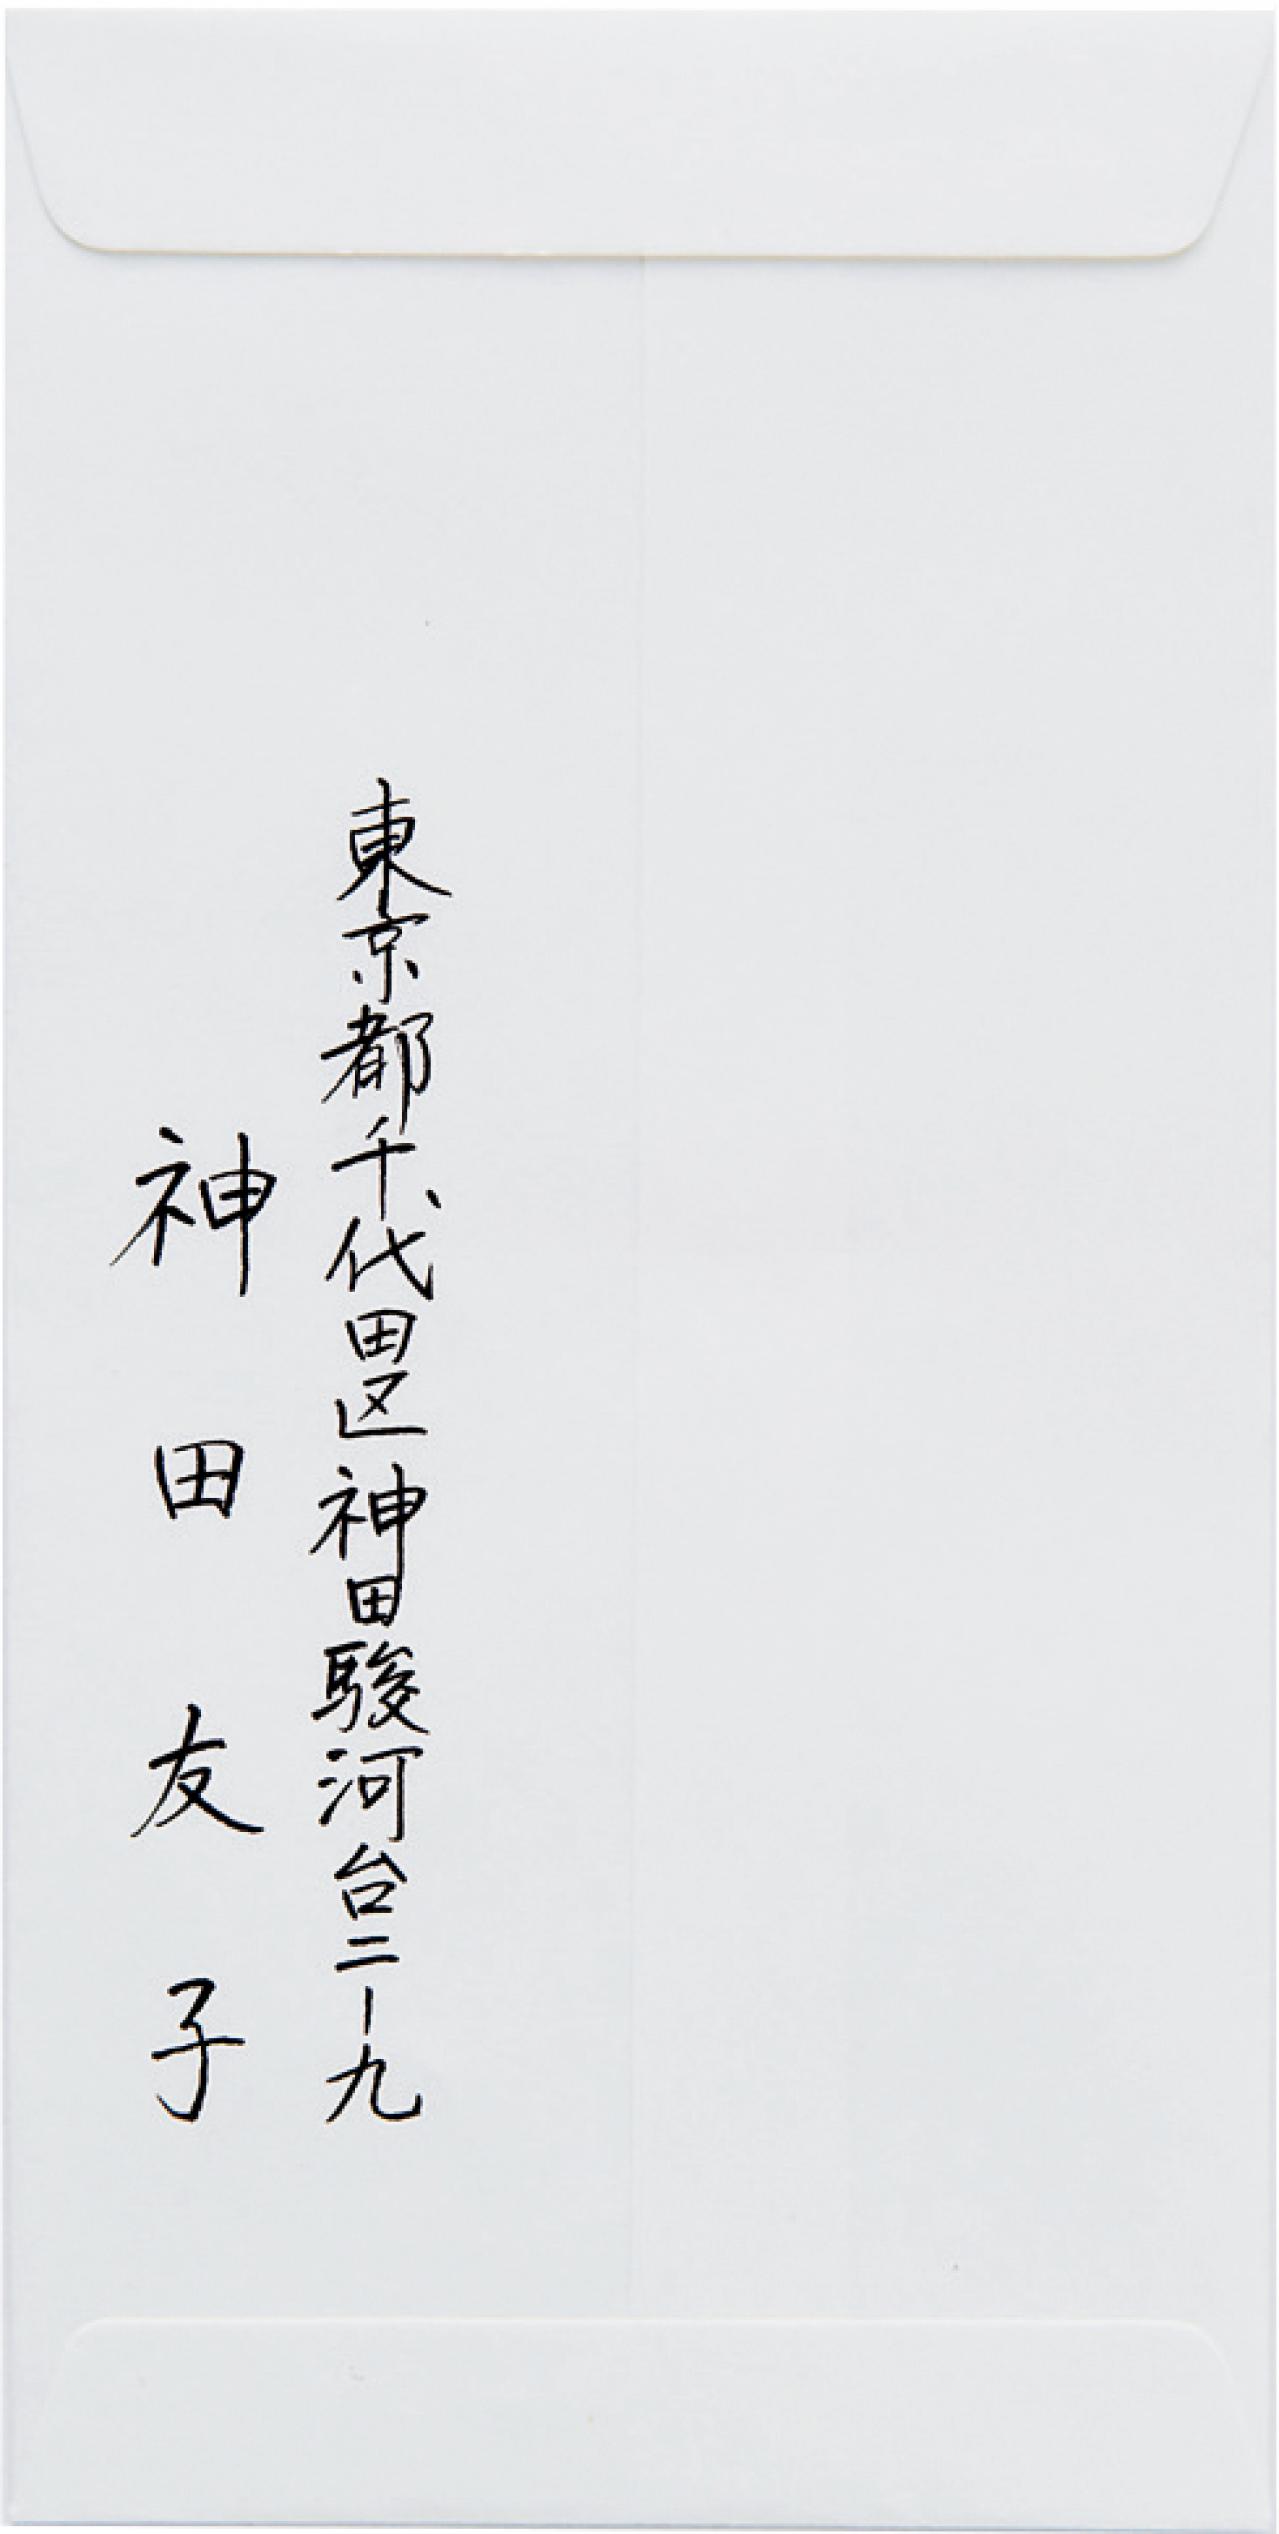 東京都千代田区神田駿河台二-九
神田友子